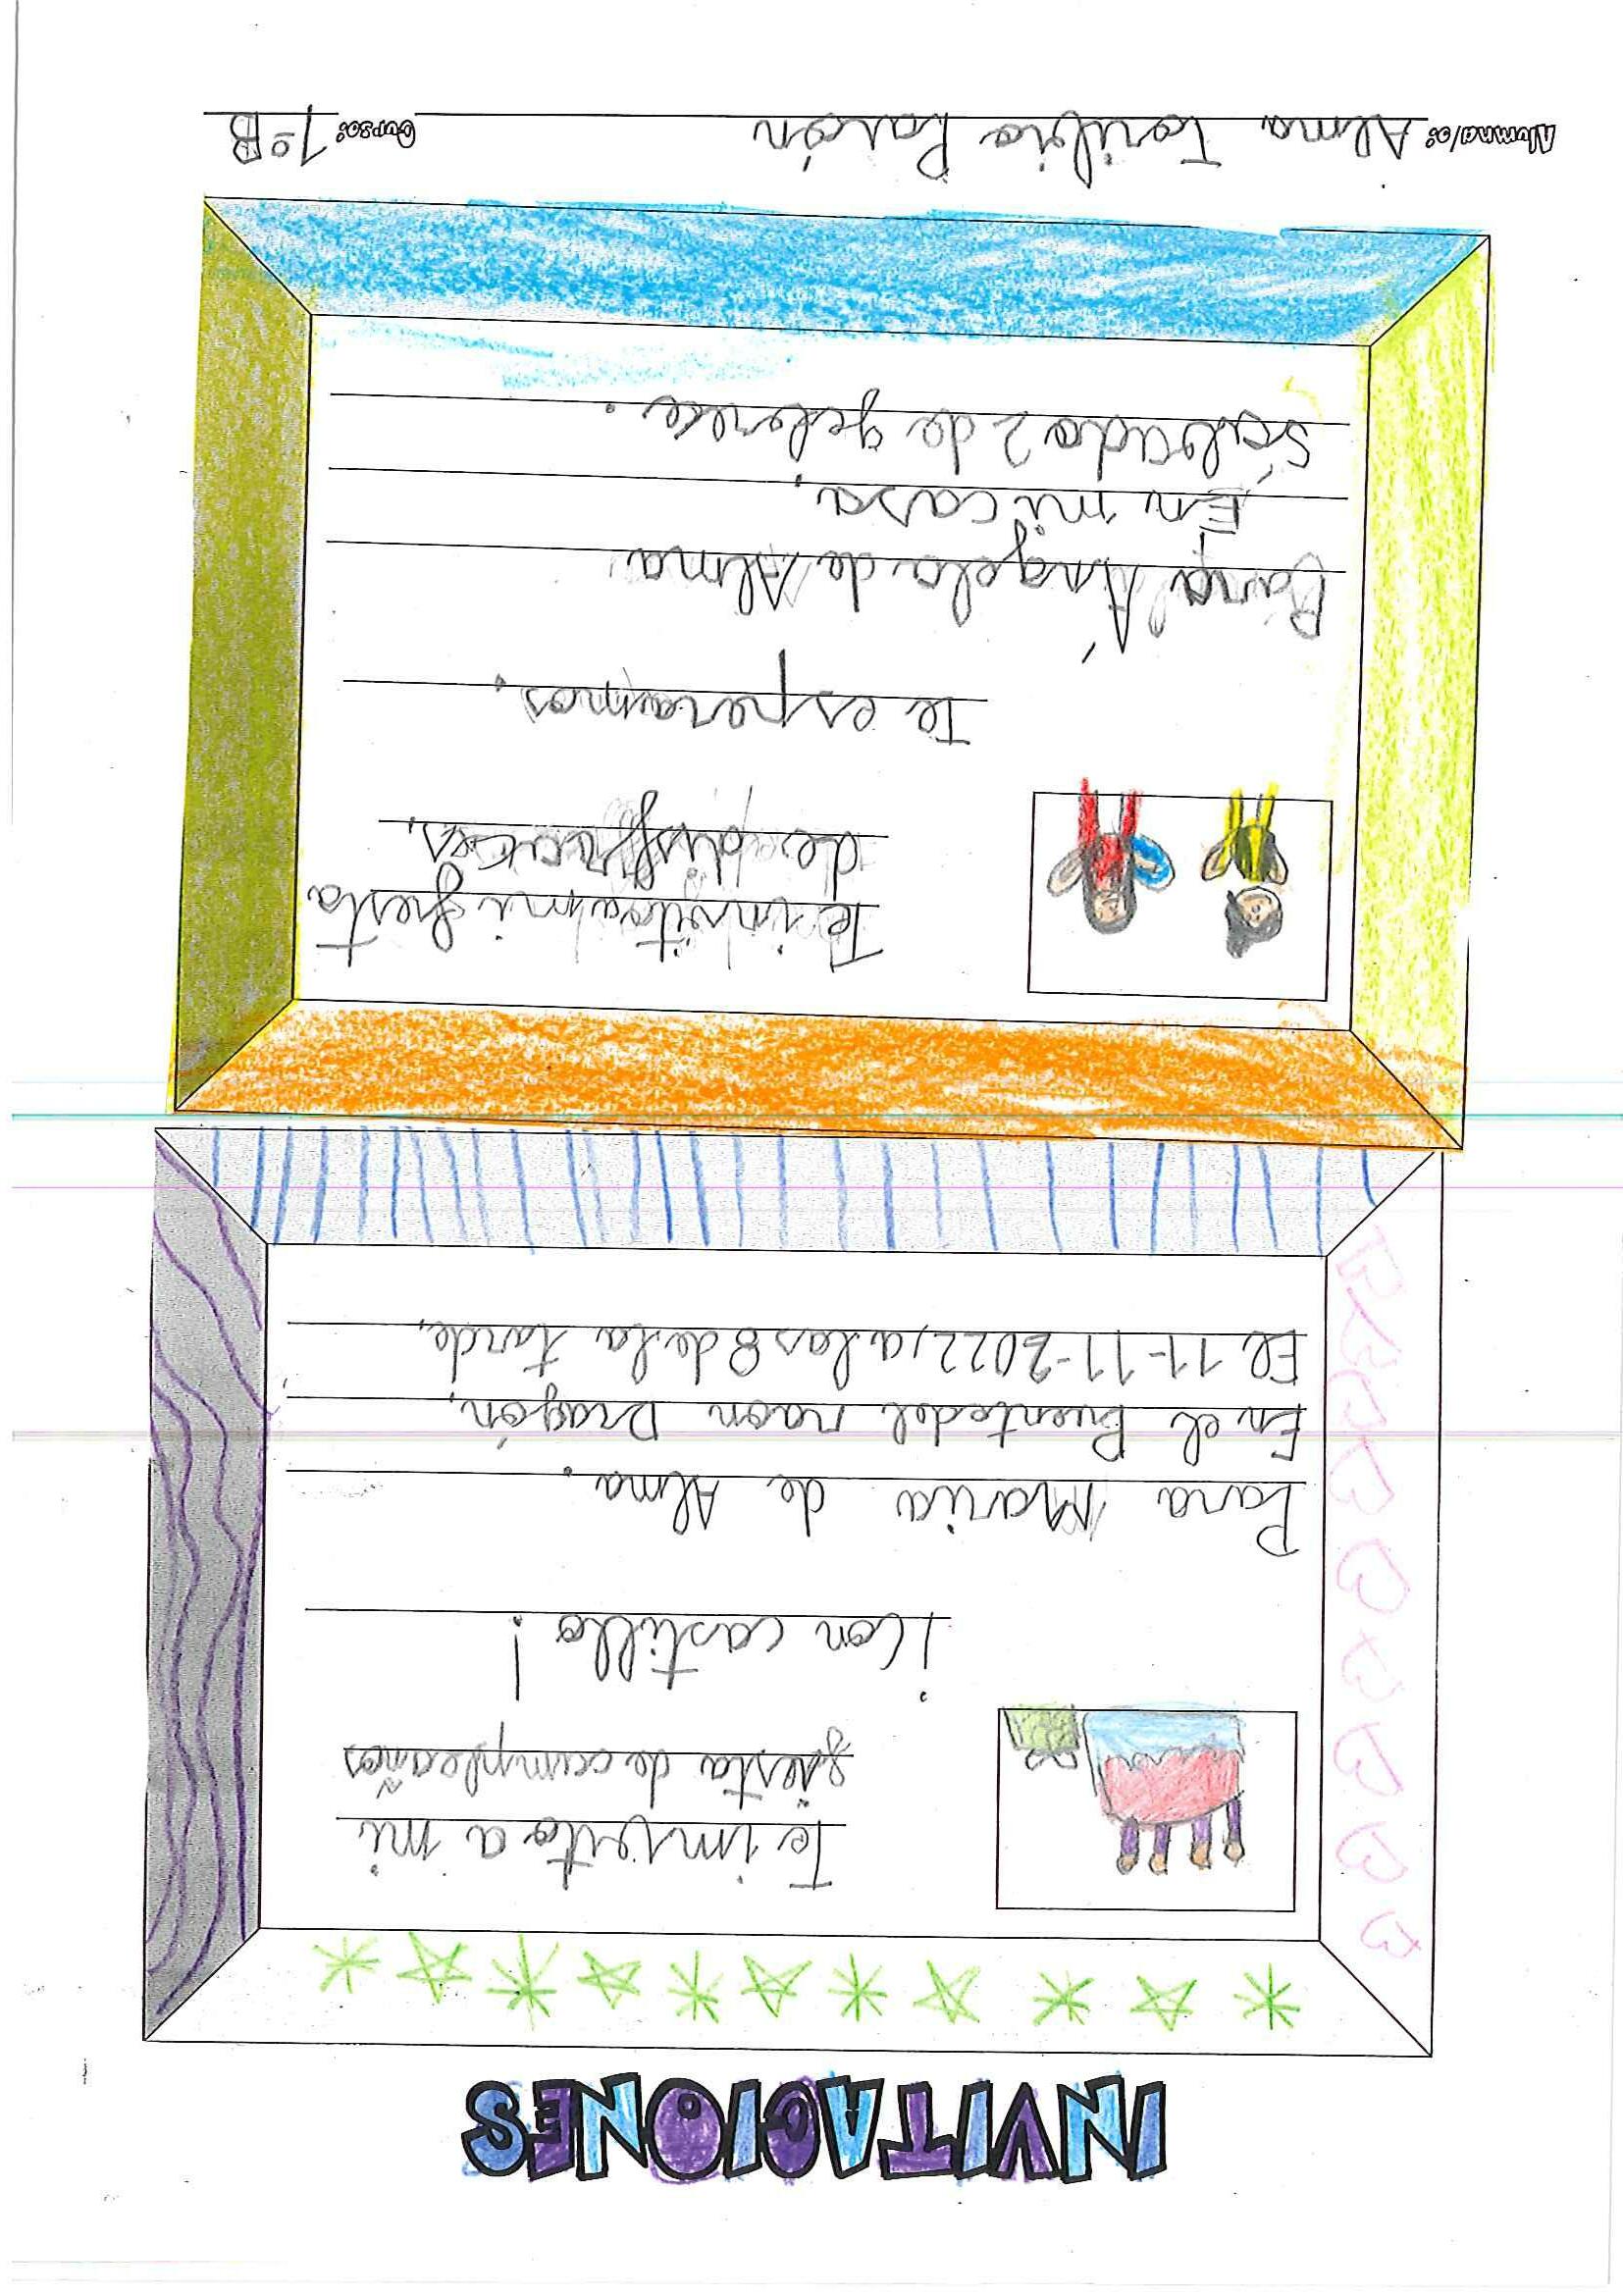 INVITACIONES
Te invito a mi
fiesta de cumpleaños
¡Con castillo!
Para María de Alma.
En el Puente del Dragón.
El 11-11-2022, a las 8 de la tarde.
Te invito a mi fiesta
de disfraces.
Te esperamos.
Para Ángela de Alma
En mi casa.
Sábado 2 de
Alumna/o: Alma Toribio
Curso: 1º B